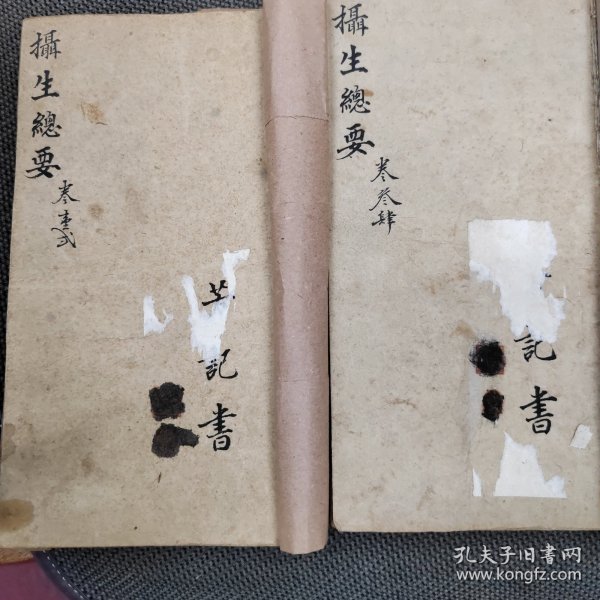 攝生總要
卷壹貳
記書
攝生總要
卷叁肆
記書
孔夫子旧书网
www.kongfz.com